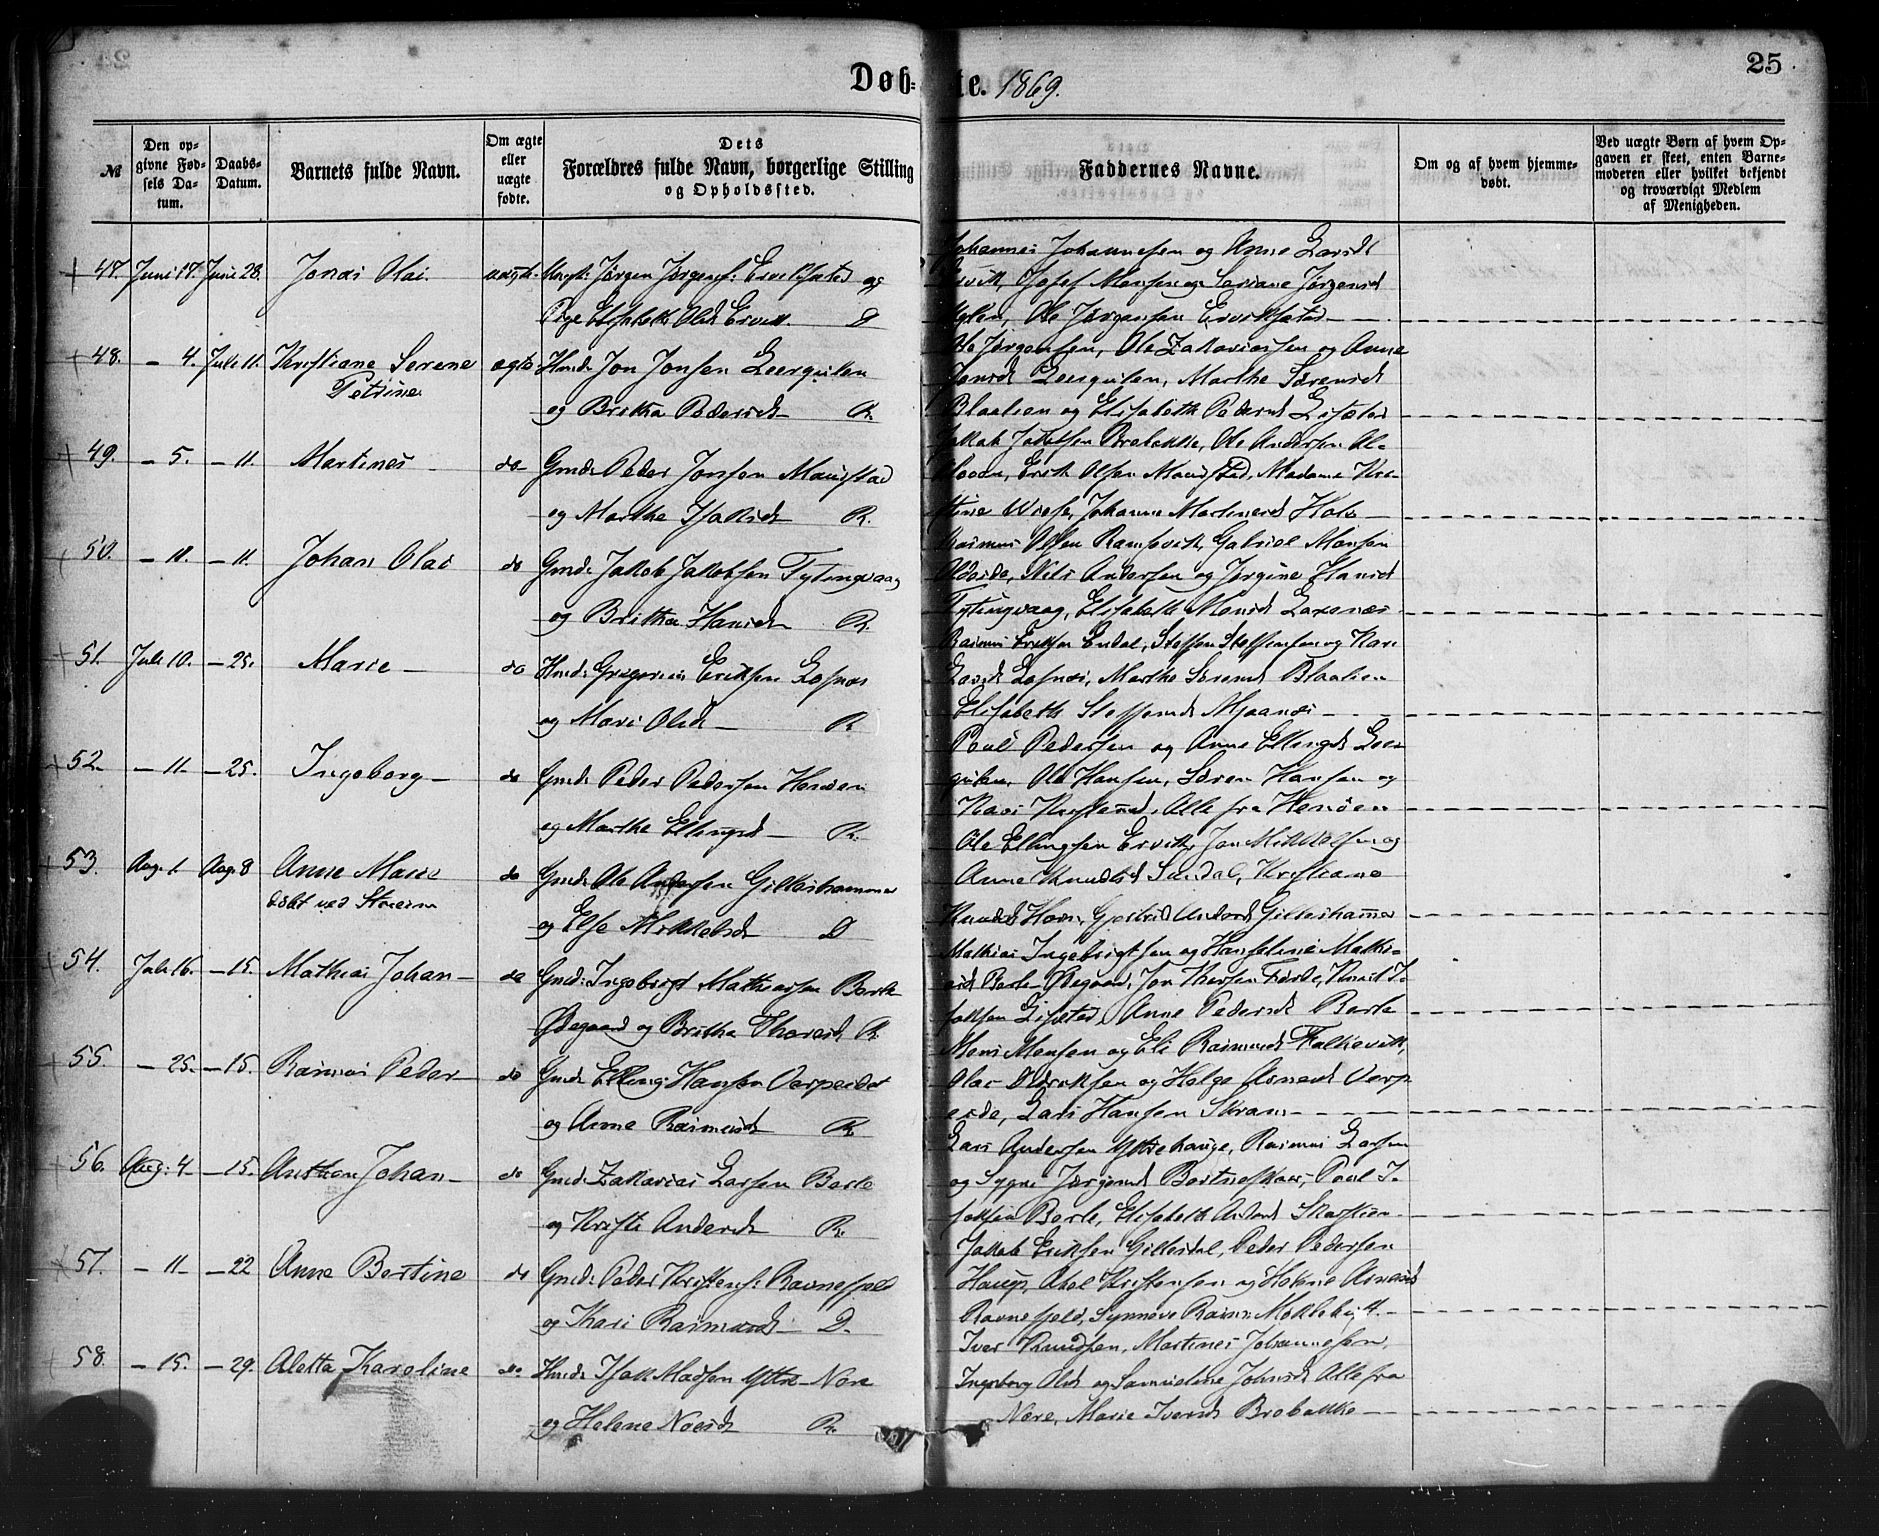 25
Døb- te. 1869.
№
Den op-
givne Fød-
sels Da-
tum.
Daabs-
Datum.
Barnets fulde Navn.
Om ægte
eller
uægte
fødte.
Dets
Forældres fulde Navn, borgerlige Stilling
og Opholdssted.
Faddernes Navne.
Om og af hvem hjemme-
døbt.
Ved uægte Børn af hvem Op-
gaven er skeet, enten Barne-
moderen eller hvilket bekjendt
og troværdigt Medlem
af Menigheden.
47. Juni 17. Juni 28. Jonas Olai uægte Ungk: Jørgen Jørgens: Erviksæter og
Pige Elisabeth Olsd. Ervik. D
Johannes Johannesen og Anne Larsd.
Ervik, Josef Monsen og Seriane Jørgensd
Ole Jørgensen Erviksæter
48. – 4. Juli 11. Kristiane Serene ægte Hmd: Jon Jonsen Leergulen
Petrine
og Britha Pedersd. R.
Ole Jørgensen, Ole Zakariassen og Anne
Jonsd Leergulen, Marthe Sørensd
Blaalien og Elisabeth Pedersd Lisæter
49. – 5. – 11. Martines – do Gmd: Peder Jonsen Maurstad
og Marthe Isaksd. R.
Jakob Jakobsen Brobakke, Ole Andersen Al-
Erik Olsen Maurstad, Madame Kri-
stine Wiese, Johanne Martinesd Hole
50. – 11. – 11. Johan Olai do Gmd: Jakob Jakobsen Tytingvaag
og Britha Hansd. R.
Rasmus Olsen Ramsvik, Gabriel Monsen
Oldeide, Nils Andersen og Jørgine Hansd
Tytingvaag, Elisabeth Monsd
51. Juli 10. – 25. Marie – do Hmd: Gregorius Eriksen Lofnæs
og Mari Olsd. – R
Rasmus Eriksen Endal, Steffen Steffensen og Kari
Larsd Lofnæs, Marthe Sørensd Blaalien
Elisabeth Steffensd Mjaanæs
52. – 11. – 25. Ingeborg – do Gmd: Peder Pedersen Henøen
og Marthe Ellingsd – R.
Poul Pedersen og Anne Ellingsd Leer-
gulen, Ole Hansen, Søren Hansen og
Kari Kristensd, Alle fra Henøen
53. Aug. 1. Aug. 8 Anne Marie do Gmd: Ole Andersen Gilleshammer
døbt ved Staverne
og Else Mikkelsd. D
Ole Ellingsen Ervik, Jon Mikkelsen og
Anne Knudsd Sundal, Kristiane
Knudsd Gjertrud Andersd Gilleshammer
54. Juli 16. – 15. Mathias Johan – do Gmd: Ingebrigt Mathiassen Berle
Ødegaard og Britha Thoresd. R
Mathias Ingebrigtsen og Hanseline Mathi-
asd Berle-Ødegaard, Jon Thorsen Førde, Knud I-
saksen Lisæter, Anne Pedersd Berle
55. – 25. – 15. Rasmus Peder – do Gmd. Elling Hansen Varpeidet
og Anne Rasmusd. R
Mons Monsen og Eli Rasmusd Falkevik,
Olai Didriksen og Helga Arnesd Varp-
eide, Lars Hansen Skram
56. Aug: 4. – 15. Anthon Johan – do Gmd: Zakarias Larsen Berle
og Kristi Andersd. R.
Lars Andersen Yttrehauge, Rasmus Larsen
og Sygni Jørgensd Bortneskar, Paul I-
saksen Berle, Elisabeth Andersd
57. – 11. – 22 Anne Bertine do Gmd: Peder Kristens: Ravnefjeld
og Kari Rasmusd. D.
Jakob Eriksen Gillesdal, Peder Pedersen
Haug, Abel Kristensen og Helene Arnesd
Ravnefjeld, Synneve Rasm: Moldebygt.
58. – 15. – 29. Aletta Karoline do Hmd: Isak Madsen Yttre-Nore
og Helene Noesd. R.
Iver Knudsen, Martines Johannesen,
Ingeborg Olsd og Samueline Johnsd Alle fra
Nore, Marie Iversd Brobakke